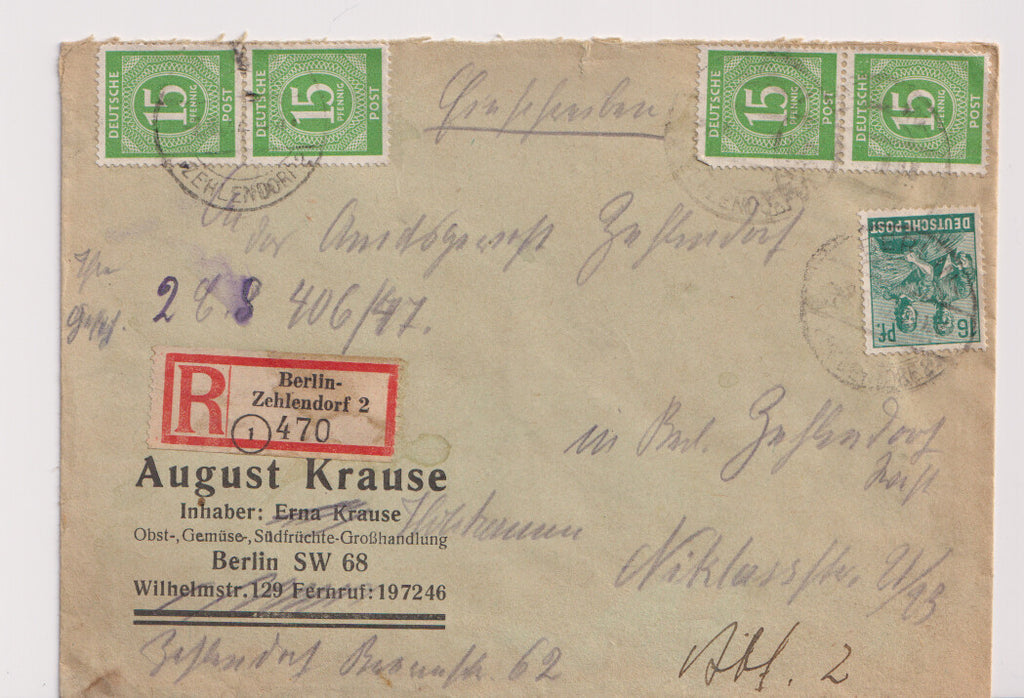 DEUTSCHE 15 PFENNIG POST
DEUTSCHE 15 PFENNIG POST
DEUTSCHE 15 PFENNIG POST
DEUTSCHE 15 PFENNIG POST
Einschreiben!
ZEHLENDORF 2
An das Amtsgericht Zehlendorf
DEUTSCHE POST
16 Pf.
406/47.
R
Berlin-
Zehlendorf 2
1 470
in Berl. Zehlendorf
August Krause
Inhaber: Erna Krause
Obst-, Gemüse-, Südfrüchte-Großhandlung
Berlin SW 68
Wilhelmstr. 129 Fernruf: 197246
Niklasstr.
Zehlendorf 62
Abt. 2